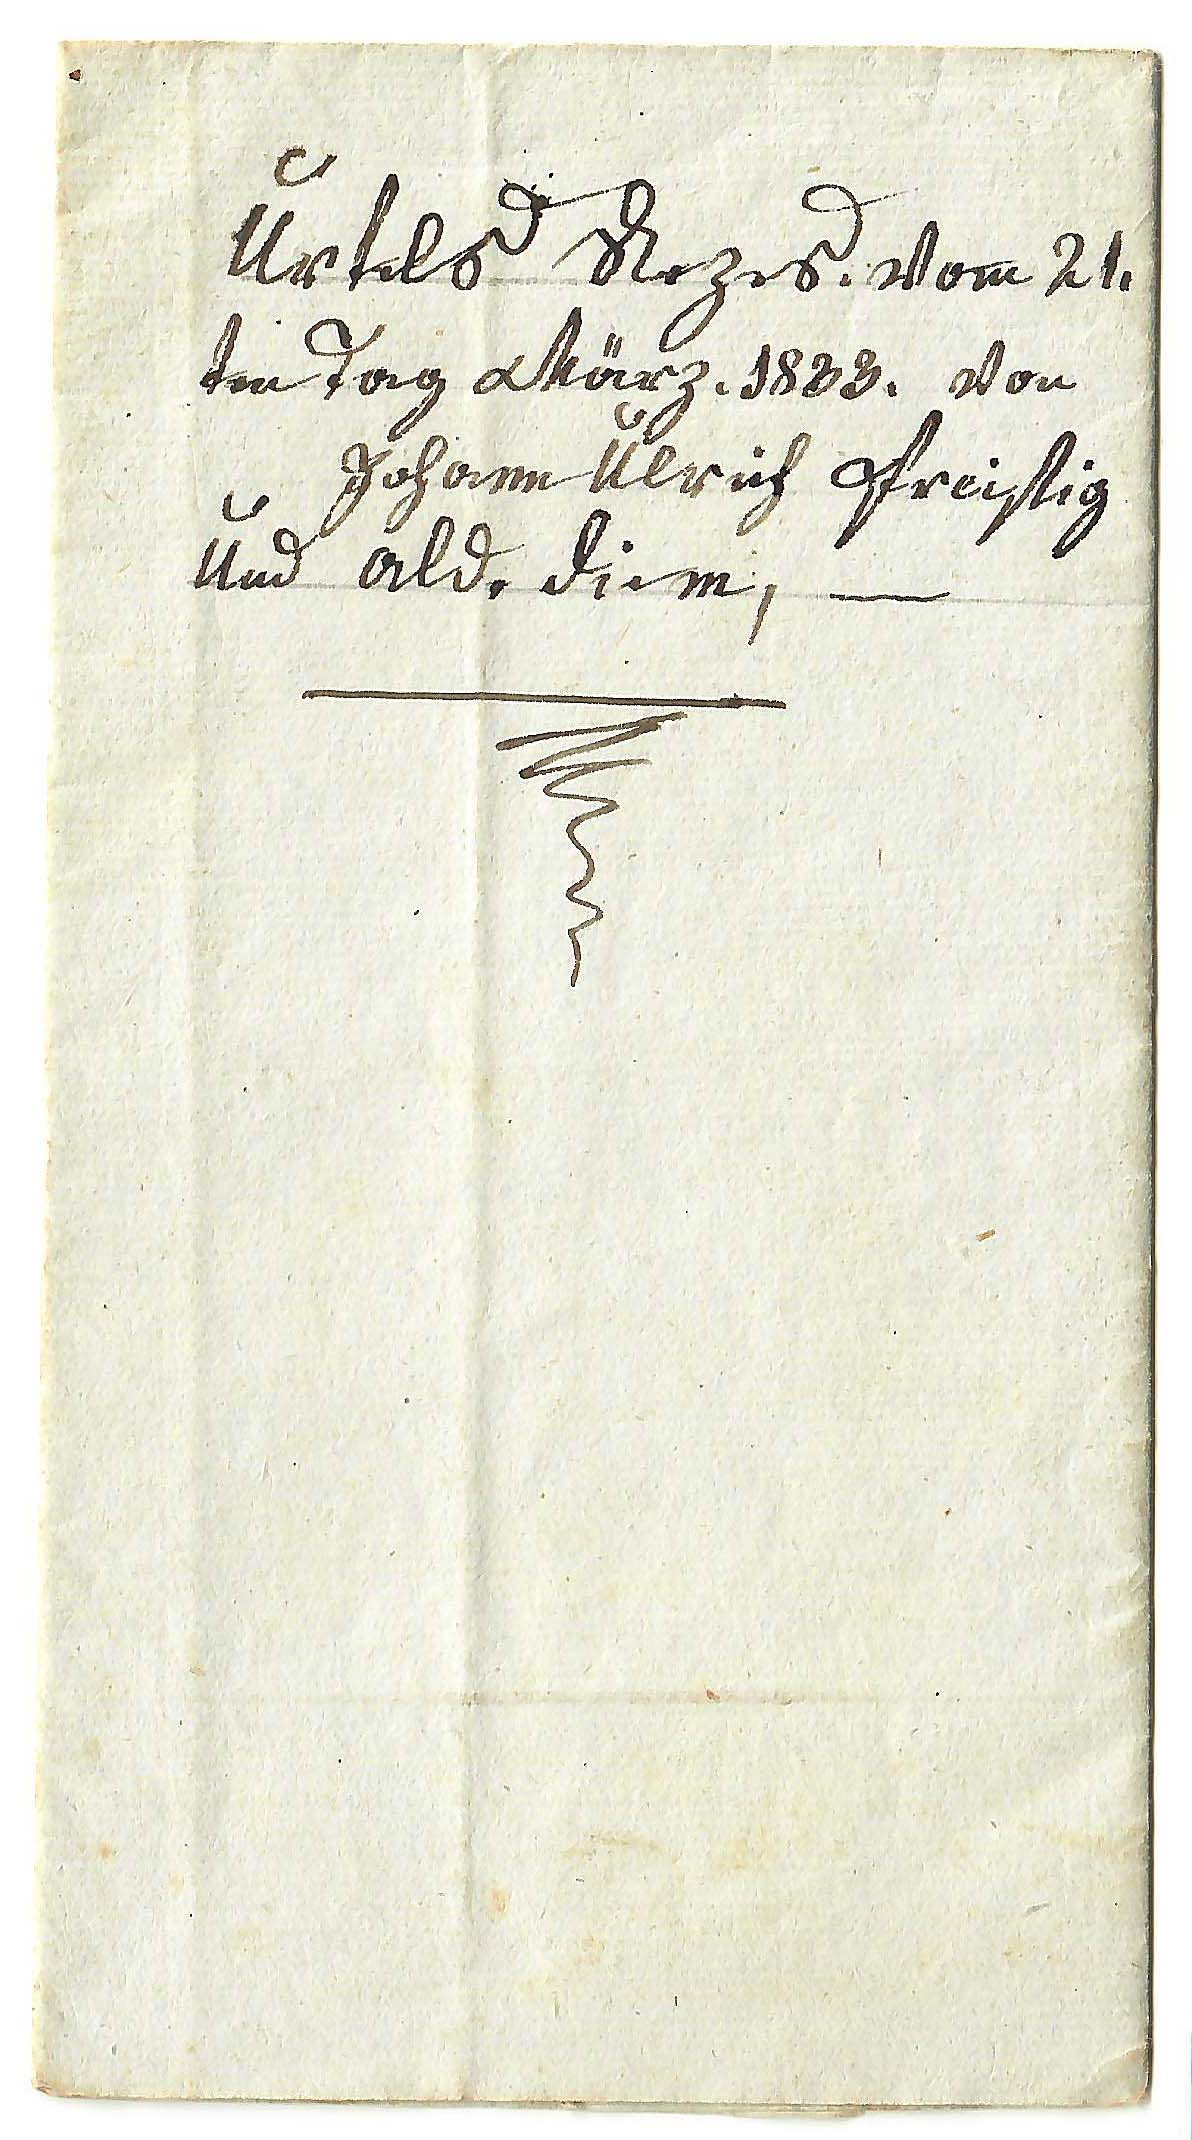 Urtels Rezes. vom 21.
ten Tag März. 1833. von
Johann Ulrich Freistig
und ald. Diem,